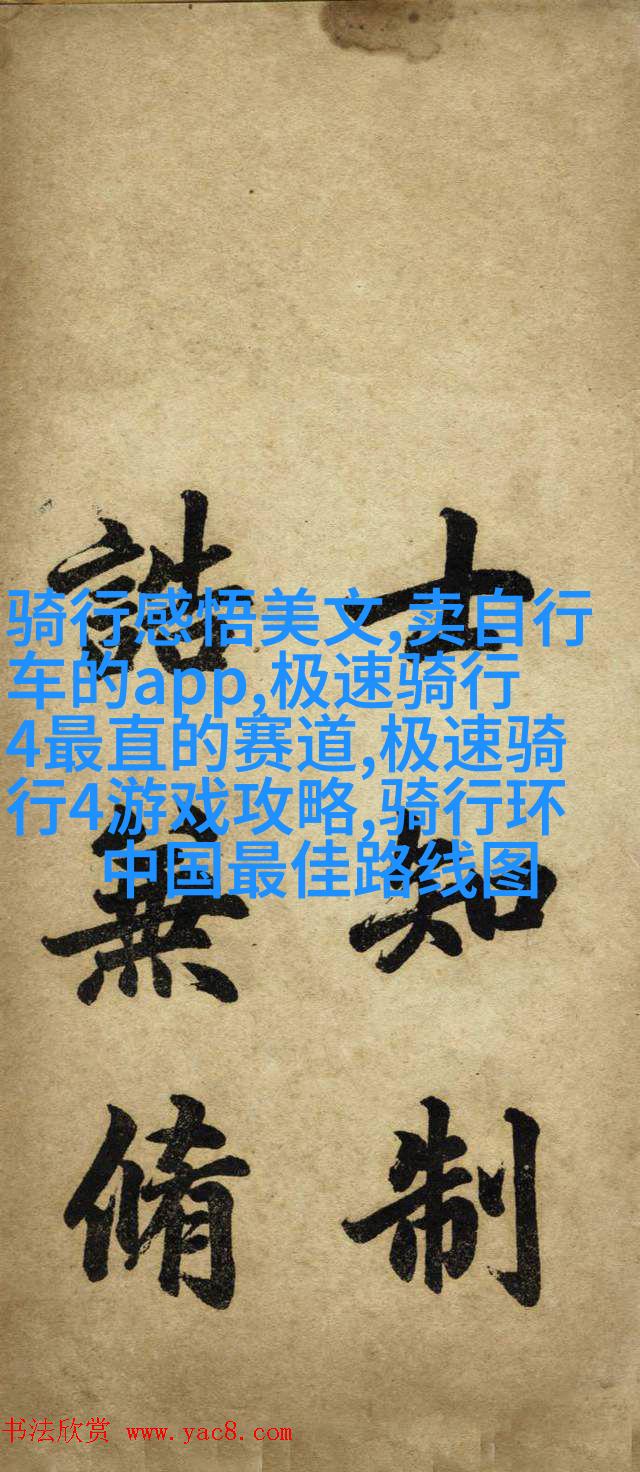 士知制
誥兼脩
骑行感悟美文,卖自行
车的app,极速骑行
4最直的赛道,极速骑
行4游戏攻略,骑行环
中国最佳路线图
书法欣赏 www.yac8.com